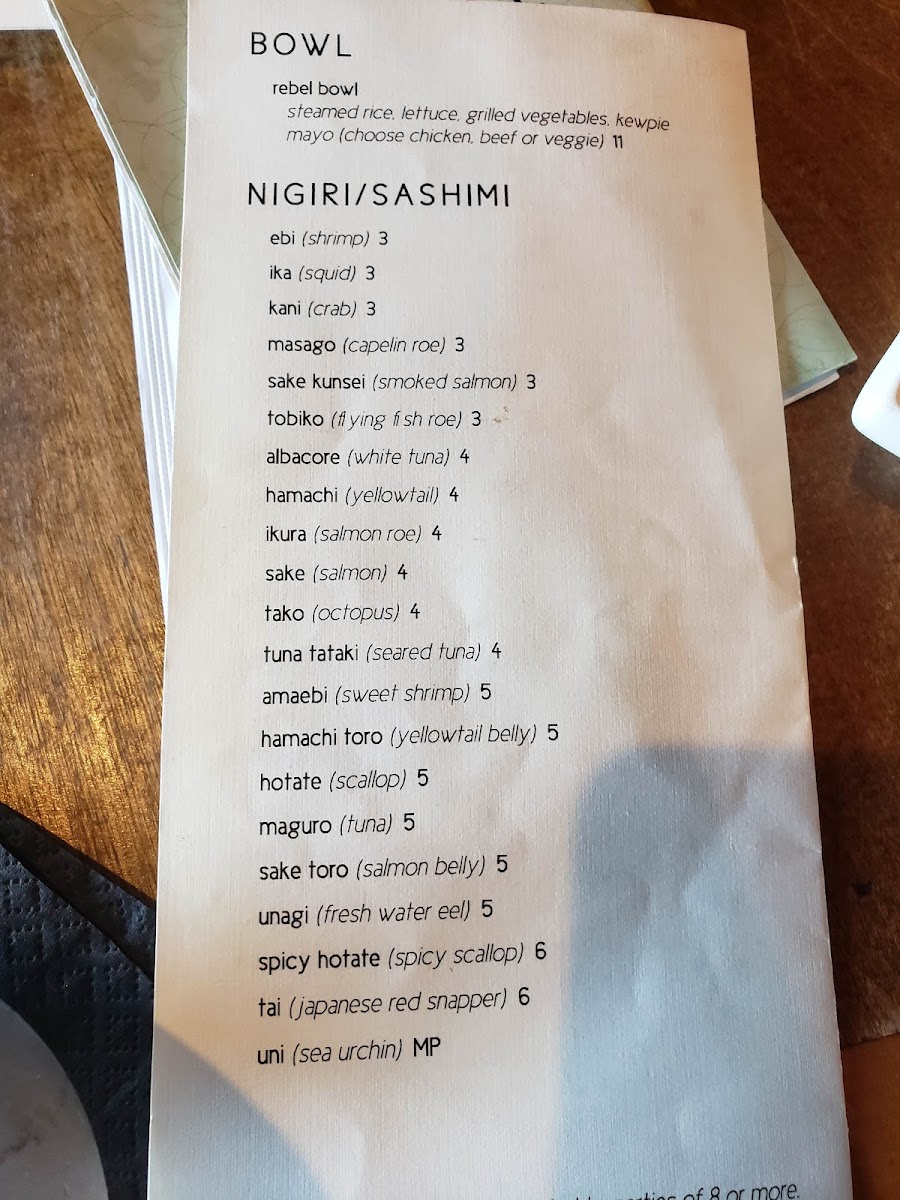 BOWL
rebel bowl
steamed rice, lettuce, grilled vegetables, kewpie
mayo (choose chicken, beef or veggie) 11
NIGIRI/SASHIMI
ebi (shrimp) 3
ika (squid) 3
kani (crab) 3
masago (capelin roe) 3
sake kunsei (smoked salmon) 3
tobiko (flying fish roe) 3
albacore (white tuna) 4
hamachi (yellowtail) 4
ikura (salmon roe) 4
sake (salmon) 4
tako (octopus) 4
tuna tataki (seared tuna) 4
amaebi (sweet shrimp) 5
hamachi toro (yellowtail belly) 5
hotate (scallop) 5
maguro (tuna) 5
sake toro (salmon belly) 5
unagi (fresh water eel) 5
spicy hotate (spicy scallop) 6
tai (japanese red snapper) 6
uni (sea urchin) MP
parties of 8 or more.